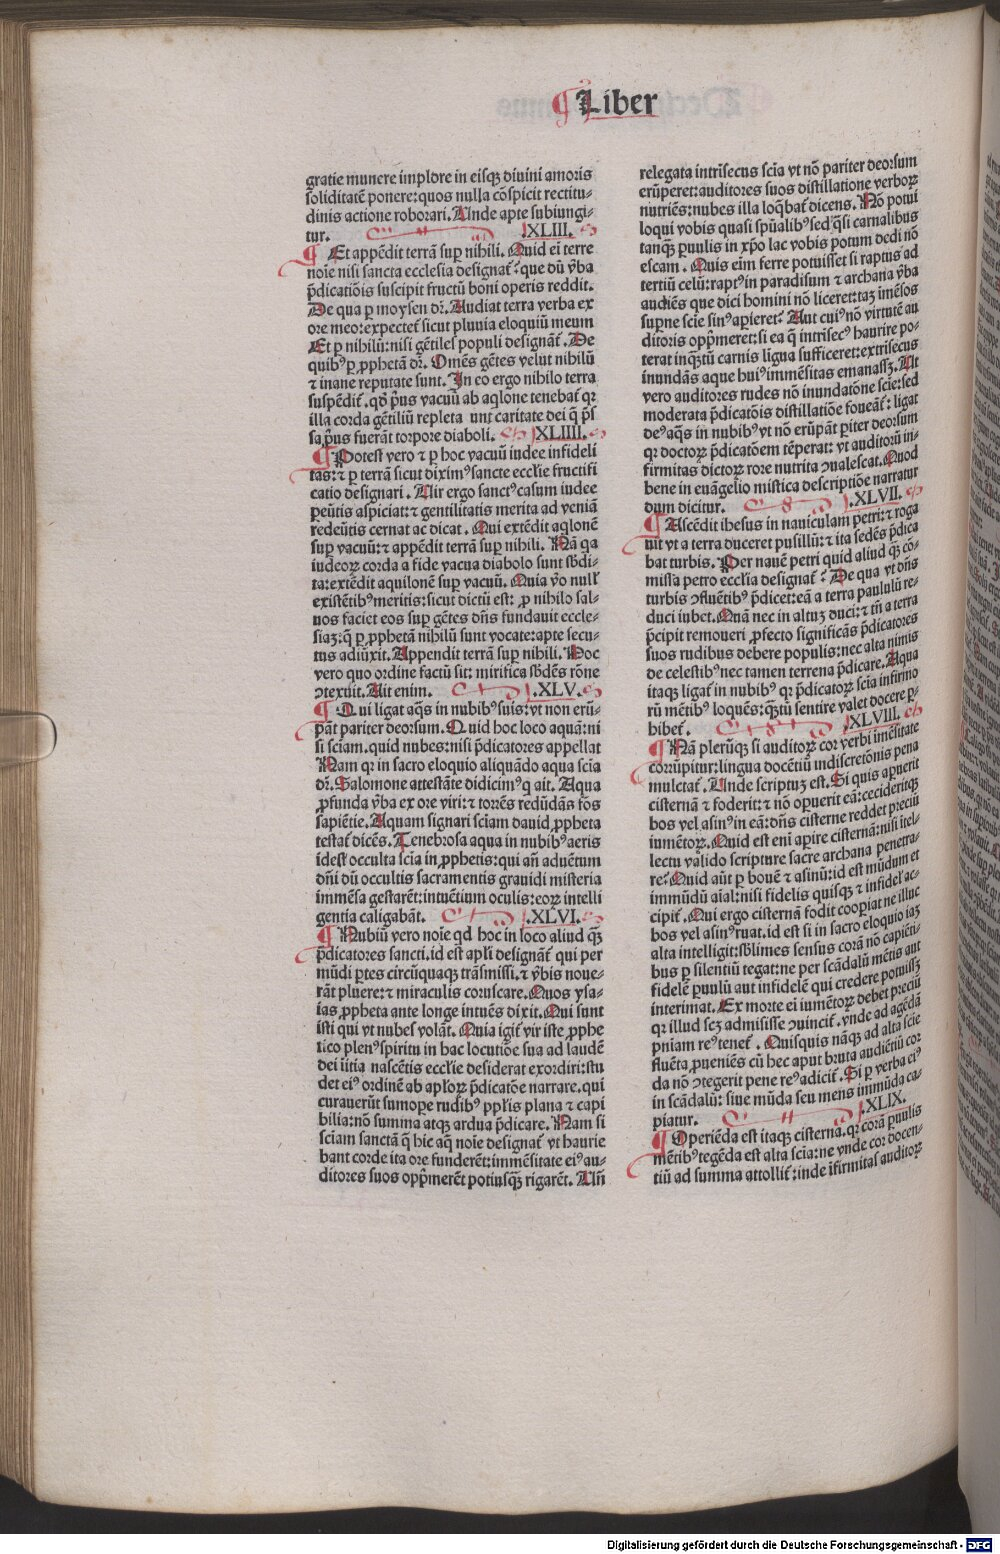 Liber
gratie munere implore in eisqꝫ diuini amoris
soliditatē ponere: quos nulla cōspicit rectitu-
dinis actione roborari. Unde apte subiungi-
tur. .XLIII.
Et appēdit terrā suꝑ nihili. Quid ei terre
noīe nisi sancta ecclesia designat̄: que dū v̄ba
p̄dicatiōis suscipit fructū boni operis reddit.
De qua ꝑ moysen dr̄. Audiat terra verba ex
ore meo: expectet̄ sicut pluuia eloquiū meum
Et ꝑ nihilū: nisi gētiles populi designāt̄. De
quibꝰ ꝑ ꝓphetā dr̄. Omēs gētes velut nihilū
⁊ inane reputate sunt. In eo ergo nihilo terra
suspēdit̄. qd̄ p̄us vacuū ab aq̄lone tenebat̄ qꝛ
illa corda gētiliū repleta unt caritate dei q̄ p̄s
sa p̄us fuerāt torpore diaboli. .XLIIII.
Potest vero ⁊ ꝑ hoc vacuū iudee infideli
tas: ⁊ ꝑ terrā sicut diximꝰ sancte ecclīe fructifi
catio designari. Uir ergo sanctꝰ casum iudee
ꝑeūtis aspiciat: ⁊ gentilitatis merita ad veniā
redeūtis cernat ac dicat. Qui extēdit aq̄lonē
suꝑ vacuū: ⁊ appēdit terrā suꝑ nihili. Nā qa
iudeoꝝ corda a fide vacua diabolo sunt sb̄di-
ta: extēdit aquilonē suꝑ vacuū. Quia v̄o null
existētibꝰ meritis: sicut dictū est: ꝓ nihilo sal-
uos faciet eos suꝑ gētes dn̄s fundauit eccle-
siaꝫ: q̄ ꝑ ꝓphetā nihilū sunt vocate: apte secu-
tus adiūxit. Appendit terrā suꝑ nihili. Hoc
vero quo ordine factū sit: mirifica sb̄dēs rōne
ꝯtexuit. Ait enim. .XLV.
Qui ligat aq̄s in nubibꝰ suis: vt non erū-
pāt pariter deorsum. Quid hoc loco aquā: ni
si sciam. quid nubes: nisi p̄dicatores appellat
Nam qꝛ in sacro eloquio aliquādo aqua scīa
dr̄. Salomone attestāte didicimꝰ q ait. Aqua
ꝓfunda v̄ba ex ore viri: ⁊ torrēs redūdās fōs
sapiētie. Aquam signari sciam dauid ꝓpheta
testat̄ dicēs. Tenebrosa aqua in nubibꝰ aeris
idest occulta scīa in ꝓphetis: qui añ aduētum
dn̄i dū occultis sacramentis grauidi misteria
immēsa gestarēt: intuētium oculis: eoꝝ intelli
gentia caligabāt. .XLVI.
Nubiū vero noīe qd hoc in loco aliud q̄ꝫ
p̄dicatores sancti. id est apl̄i designāt̄ qui per
mūdi ꝑtes circūquaqꝫ trāsmissi. ⁊ v̄bis noue-
rāt pluere: ⁊ miraculis coruscare. Quos ysa-
ias ꝓpheta ante longe intuēs dixit. Qui sunt
isti qui vt nubes volāt. Quia igit̄ vir iste ꝓphe
tico plenꝰ spiritu in hac locutiōe sua ad laudē
dei iitia nascētis ecclīe desiderat exordiri: stu
det eiꝰ ordinē ab apl̄oꝝ p̄dicatōe narrare. qui
curauerūt sumope rudibꝰ ppl̄is plana ⁊ capi
bilia: nō summa atqꝫ ardua p̄dicare. Nam si
sciam sanctā q̄ hic aq̄ noīe designat̄ vt haurie
bant corde ita ore funderēt: immēsitate eiꝰ au-
ditores suos opp̄merēt potiusq̄ꝫ rigarēt. Uñ
relegata intrīsecus scīa vt nō pariter deorsum
erūperet: auditores suos distillatione verboꝝ
nutriēs: nubes illa loq̄bat̄ dicens. Nō potui
loqui vobis quasi spūalibꝰ sed q̄si carnalibus
tanq̄ꝫ ꝑuulis in xp̄o lac vobis potum dedi nō
escam. Quis eim ferre potuisset si raptus ad
tertiū celū: raptꝰ in paradisum ⁊ archana v̄ba
audiēs que dici homini nō liceret: taꝫ imēsos
suꝑne scīe sinꝰ aꝑieret: Aut cuiꝰ nō virtutē au
ditoris opp̄meret: si ea q̄ intrīsecꝰ haurire po-
terat inq̄tū carnis ligna sufficeret: extrīsecus
inundās aque huiꝰ immēsitas emanassꝫ. Ut
vero auditores rudes nō inundatōne scīe: sed
moderata p̄dicatōis distillatiōe foueāt̄: ligat
deꝰ aq̄s in nubibꝰ vt nō erūpāt ꝑiter deorsum
qꝛ doctoꝝ p̄dicatōem tēperat: vt auditorū in-
firmitas dictoꝝ rore nutrita ꝯualescat. Quod
bene in euāgelio mistica descriptiōe narratur
dum dicitur. .XLVII.
Ascēdit ihesus in nauiculam petri: ⁊ roga
uit vt a terra duceret pusillū: ⁊ ita sedēs p̄dica
bat turbis. Per nauē petri quid aliud q̄ꝫ cō-
missa petro ecclīa designat̄: De qua vt dn̄s
turbis ꝯfluētibꝰ p̄dicet: eā a terra paululū re-
duci iubet. Quā nec in altuꝫ duci: ⁊ tn̄ a terra
p̄cipit remoueri ꝓfecto significās p̄dicatores
suos rudibus debere populis: nec alta nimis
de celestibꝰ nec tamen terrena p̄dicare. Aqua
itaqꝫ ligat̄ in nubibꝰ qꝛ p̄dicatoꝝ scīa infirmo
rū mētibꝰ loquēs: q̄tū sentire valet docere ꝓ-
hibet̄. .XLVIII.
Nā plerūqꝫ si auditoꝝ cor verbi īmēsitate
corrūpitur: lingua docētiū indiscretōnis pena
mulctat̄. Unde scriptuꝫ est. Si quis aꝑuerit
cisternā ⁊ foderit: ⁊ nō oꝑuerit eā: cecideritqꝫ
bos vel asinꝰ in eā: dn̄s cisterne reddet preciū
iumētoꝝ. Quid est eni aꝑire cisternā: nisi ītel-
lectu valido scripture sacre archana penetra-
re: Quid aūt ꝑ bouē ⁊ asinū: id est mūdum et
immūdū aīal: nisi fidelis quisqꝫ ⁊ infidel̄ ac-
cipit̄. Qui ergo cisternā fodit cooꝑiat ne illuc
bos vel asinꝰ ruat. id est si in sacro eloquio iaꝫ
alta intelligit: sb̄limes sensus corā nō capiēti-
bus ꝑ silentiū tegat: ne per scādalū mētis aut
fidelē ꝑuulū aut infidelē qui credere potuissꝫ
interimat. Ex morte ei iumētoꝝ debet preciū
qꝛ illud scꝫ admisisse ꝯuincit̄. vnde ad agēdā
pniam reꝰ tenet̄. Quisquis nāqꝫ ad alta scīe
fluēta ꝓueniēs cū hec aput bruta audiētiū cor
da nō ꝯtegerit pene reꝰ adicit̄. Si ꝑ verba eiꝰ
in scādalū: siue mūda seu mens immūda ca-
piatur. .XLIX.
Operiēda est itaqꝫ cisterna. qꝛ corā ꝑuulis
mētibꝰ tegēda est alta scīa: ne vnde cor docen-
tiū ad summa attollit̄: inde īfirmitas auditoꝝ
Digitalisierung gefördert durch die Deutsche Forschungsgemeinschaft - DFG